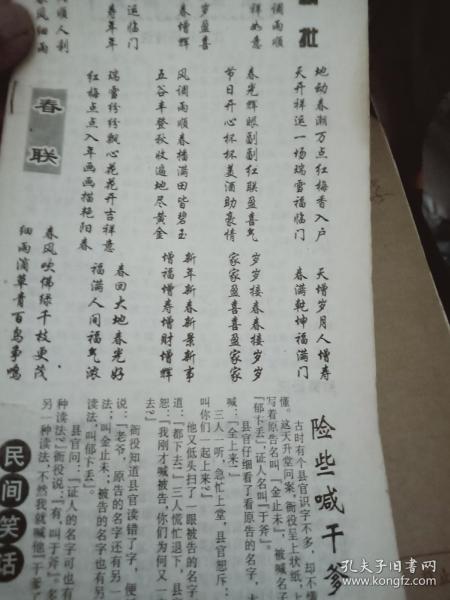 批
春联
岁岁盈喜
春增辉
地动春潮万点红梅香入户
天开祥运一场瑞雪福临门
春光辉眼副副红联盈喜气
节日开心杯杯美酒助豪情
风调雨顺春播满田皆碧玉
五谷丰登秋收遍地尽黄金
瑞雪纷纷飘心花花开吉祥意
红梅点点入年画画描艳阳春
天增岁月人增寿
春满乾坤福满门
岁岁接春春接岁岁
家家盈喜喜盈家家
新年新春新景新事
增福增寿增财增辉
春回大地春光好
福满人间福气浓
春风吹佛绿千枝更茂
细雨滴草青百鸟争鸣
民间笑话
险些喊干爹
古时有个县官识字不多，却不懂
装懂。这天升堂问案，衙役呈上状纸，上
写着原告名叫“金止未”，被喊名
“郁卞丢”，证人名叫“于斧”。
县官仔细看了看原告的名字，大
喊：“全上来！”
三人一听，急忙上堂，县官怒斥：
叫你们一起上来？”
他又低头扫了一眼被告的名字
道：“都下去！”三人慌忙退下，县
怒：“我刚才喊被告，你们为何又一
去？”
衙役知道县官读错了字，便
说：“老爷，原告的名字还有另一
法，叫金止未；被告的名字也有另
读法，叫郁卞丢。”
县官问：“证人的名字可也有
种读法？”衙役说：“有，叫于斧。”多
另一种读法，不然我就喊他干爹了
孔夫子旧书网
kongfz.com